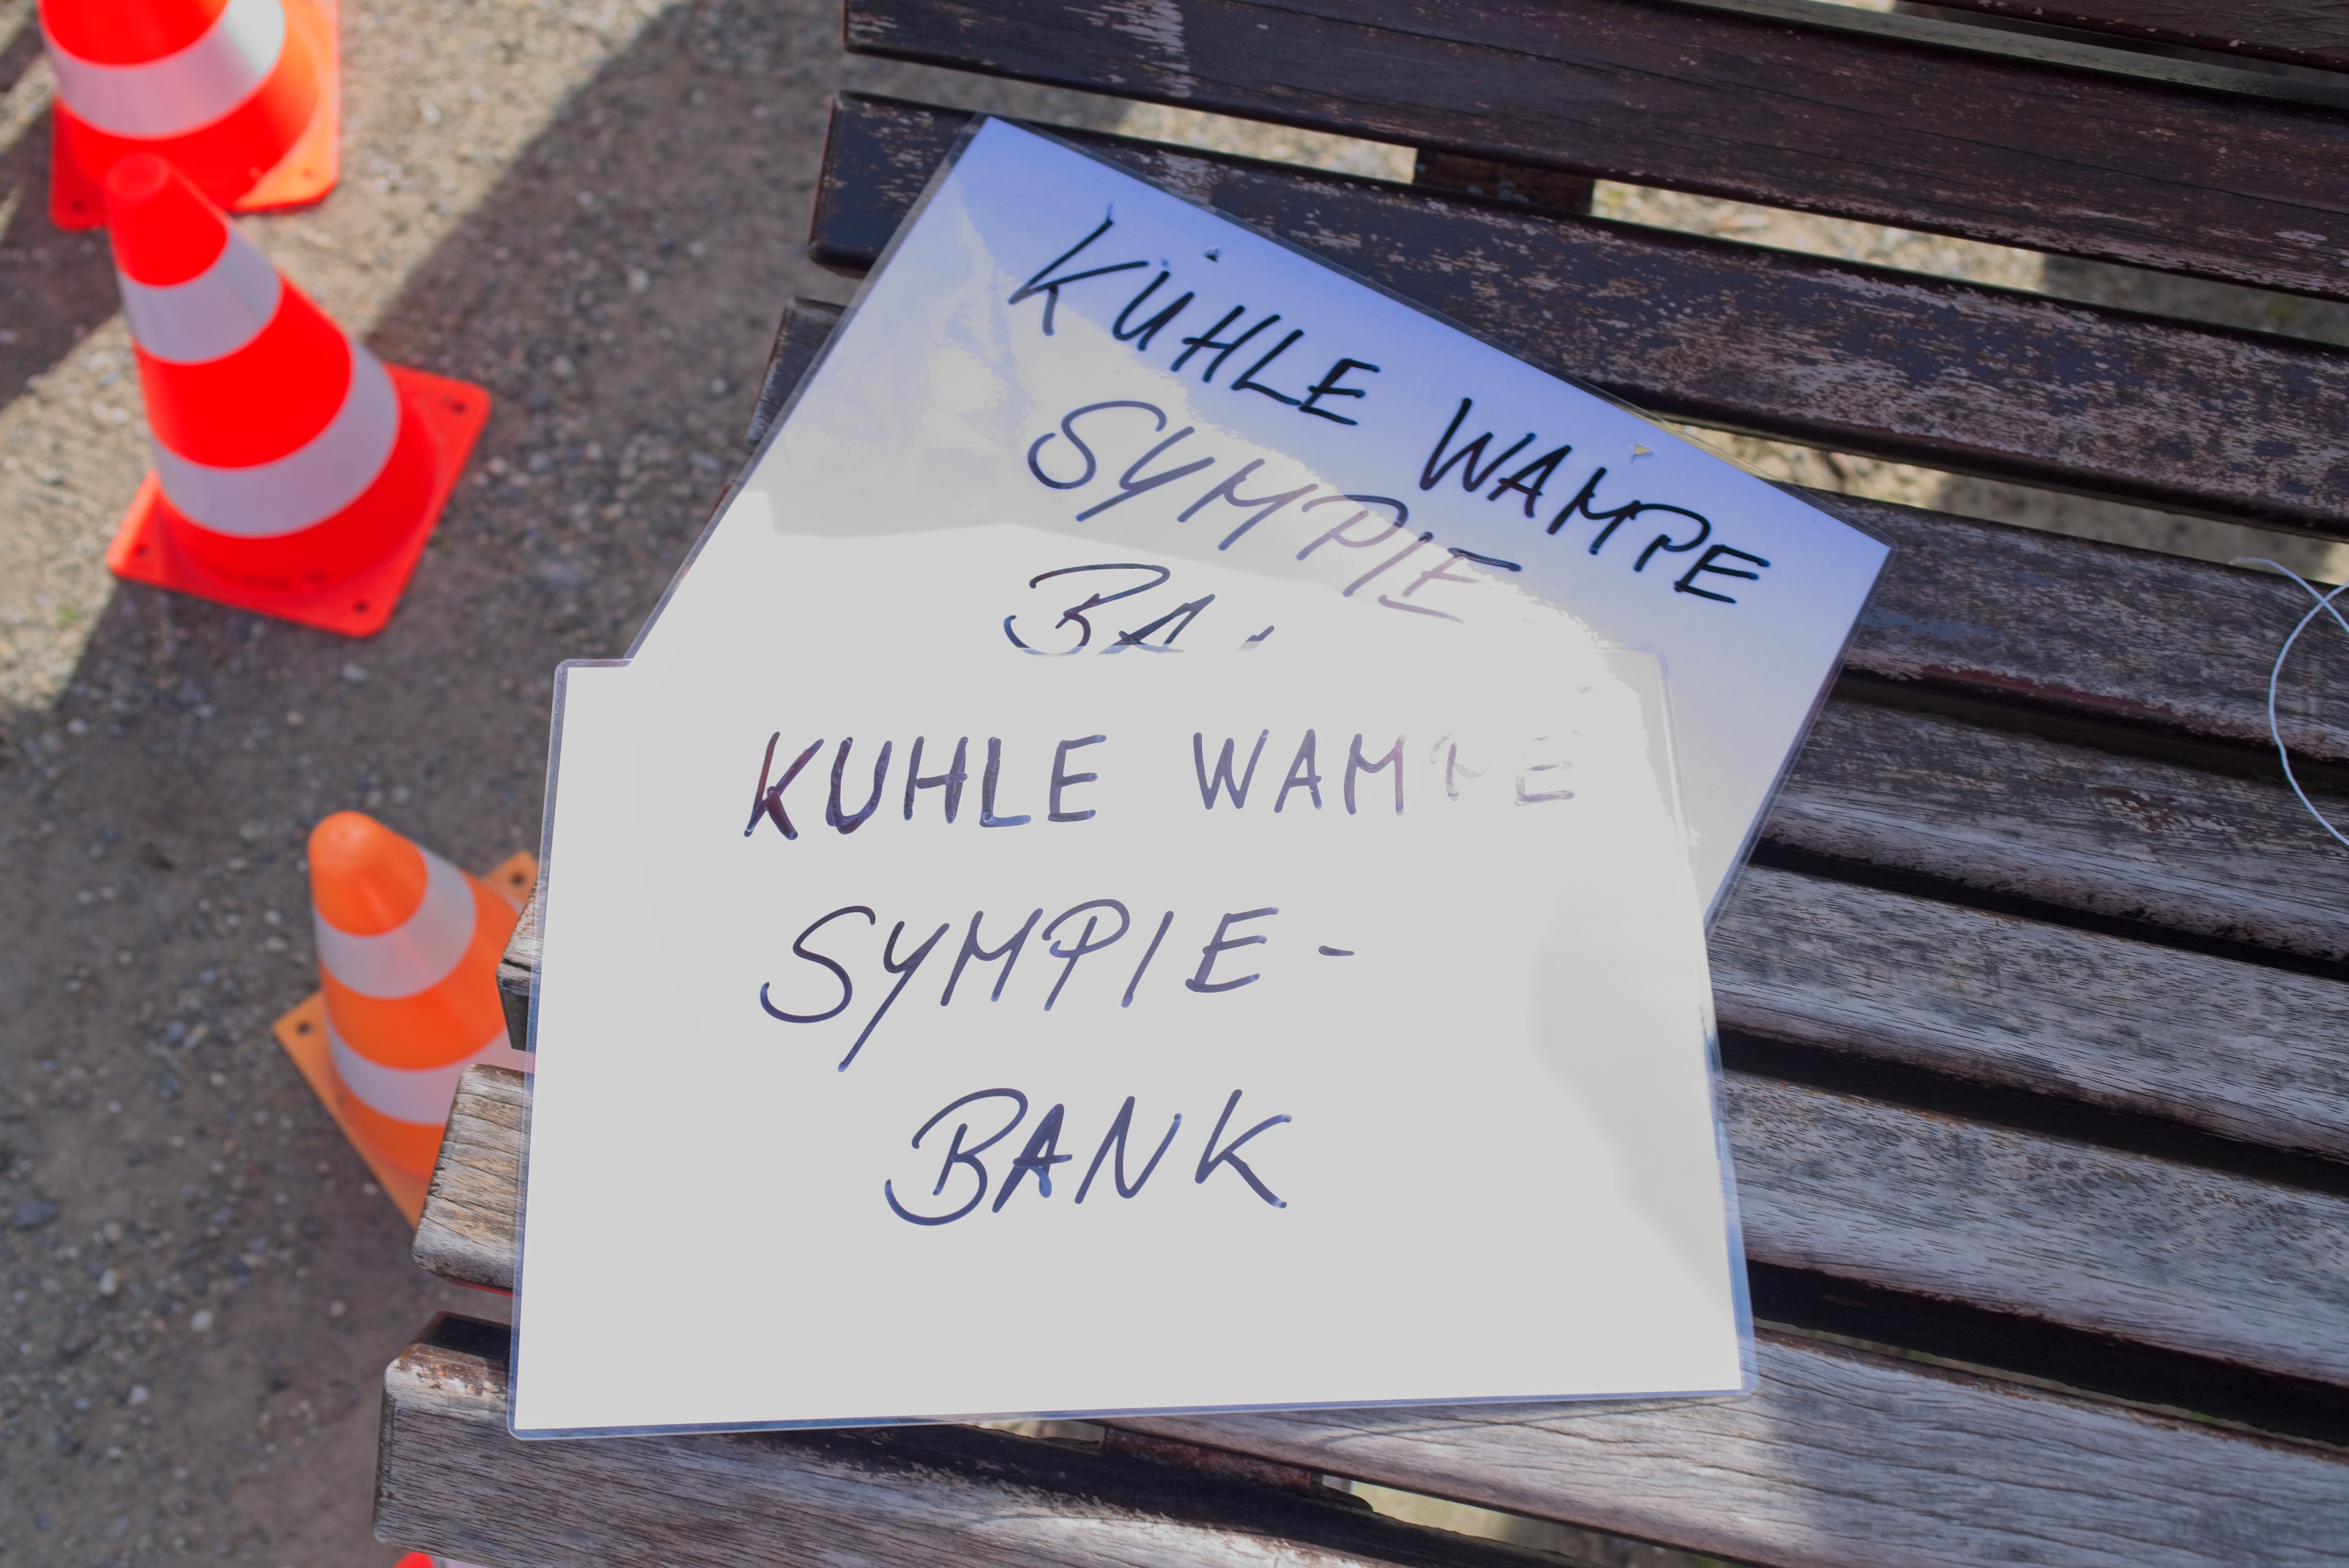 KUHLE WAMPE
SYMPIE
BA
KUHLE WAMPE
SYMPIE-
BANK